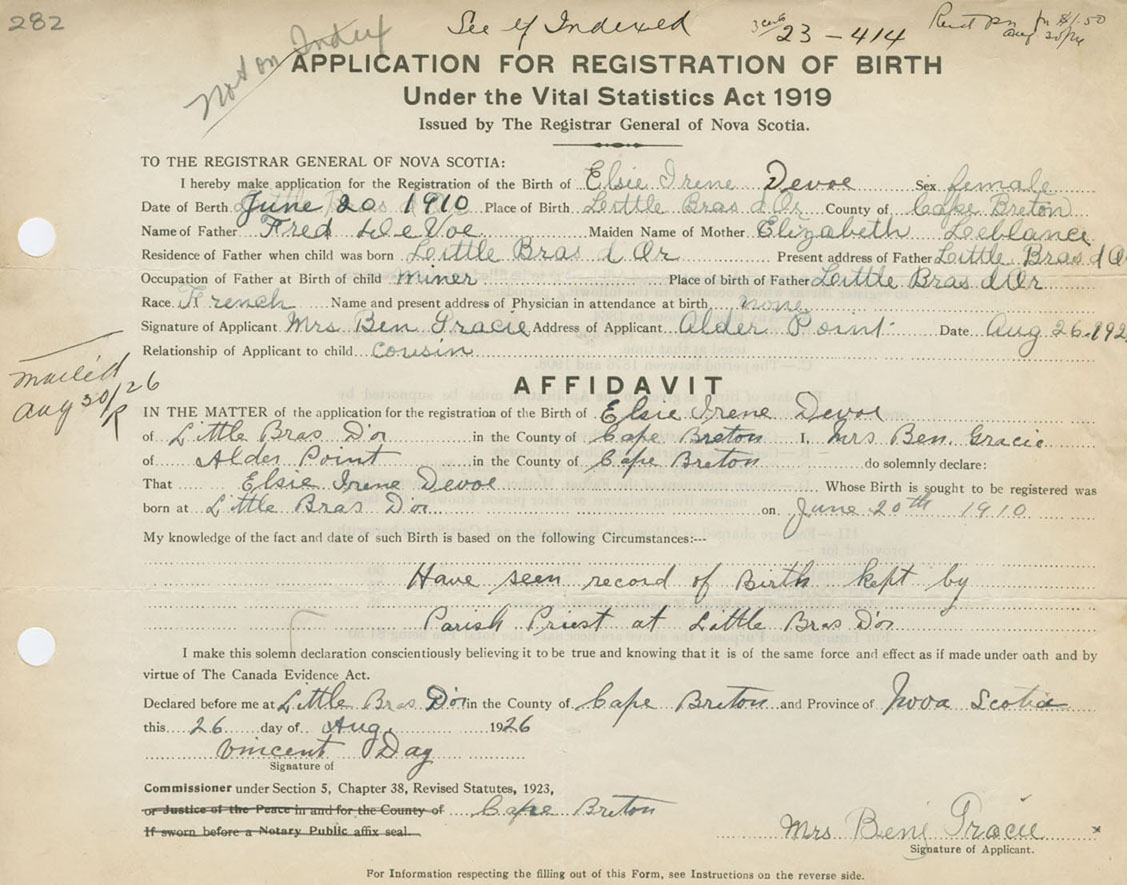 282
See if Indexed
23-414
Aug 30/26
Not on Index
APPLICATION FOR REGISTRATION OF BIRTH
Under the Vital Statistics Act 1919
Issued by The Registrar General of Nova Scotia.
TO THE REGISTRAR GENERAL OF NOVA SCOTIA:
I hereby make application for the Registration of the Birth of Elsie Irene Devoe Sex female
Date of Berth June 20 1910 Place of Birth Little Bras d'Or County of Cape Breton
Name of Father Fred DeVoe Maiden Name of Mother Elizabeth Leblance
Residence of Father when child was born Little Bras d Or Present address of Father Little Bras d O
Occupation of Father at Birth of child miner Place of birth of Father Little Bras d'Or
Race French Name and present address of Physician in attendance at birth none
Signature of Applicant Mrs Ben Gracie Address of Applicant Alder Point Date Aug 26 192
Relationship of Applicant to child cousin
mailed
Aug 30/26
R
AFFIDAVIT
IN THE MATTER of the application for the registration of the Birth of Elsie Irene Devoe
of Little Bras D'or in the County of Cape Breton I, Mrs Ben Gracie
of Alder Point in the County of Cape Breton do solemnly declare:
That Elsie Irene Devoe Whose Birth is sought to be registered was
born at Little Bras D'or on June 20th 1910
My knowledge of the fact and date of such Birth is based on the following Circumstances:---
Have seen record of Birth kept by
Parish Priest at Little Bras D'or
I make this solemn declaration conscientiously believing it to be true and knowing that it is of the same force and effect as if made under oath and by
virtue of The Canada Evidence Act.
Declared before me at Little Bras D'or in the County of Cape Breton and Province of Nova Scotia
this 26 day of Aug. 1926
Vincent Day
Signature of
Commissioner under Section 5, Chapter 38, Revised Statutes, 1923,
or Justice of the Peace in and for the County of Cape Breton
If sworn before a Notary Public affix seal.
Mrs Benj Gracie x
Signature of Applicant.
For Information respecting the filling out of this Form, see Instructions on the reverse side.